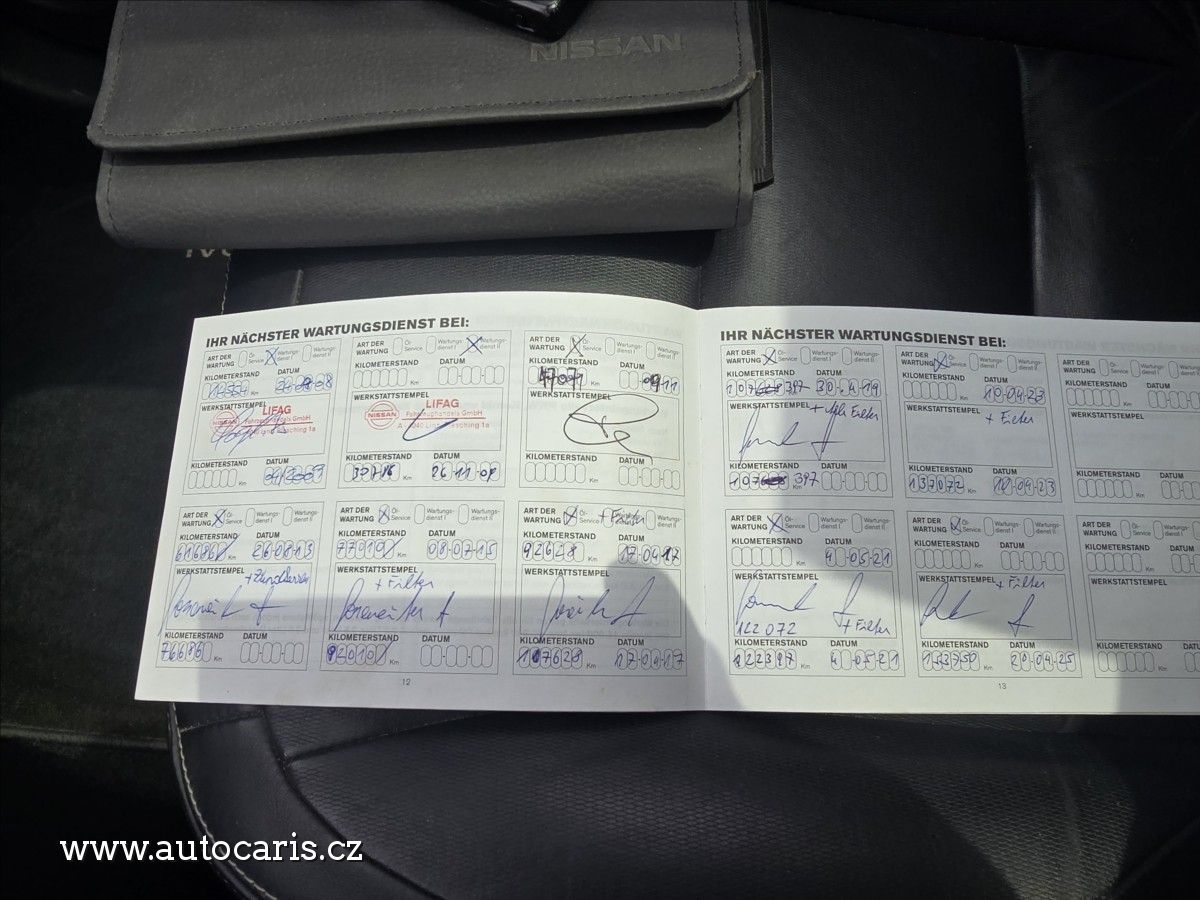 NISSAN
IHR NÄCHSTER WARTUNGSDIENST BEI:
ART DER WARTUNG Öl-Service Wartungsdienst I Wartungsdienst II
KILOMETERSTAND DATUM
Km
WERKSTATTSTEMPEL
LIFAG
NISSAN Fahrzeughandels GmbH
KILOMETERSTAND DATUM
Km
ART DER WARTUNG Öl-Service Wartungsdienst I Wartungsdienst II
KILOMETERSTAND DATUM
Km
WERKSTATTSTEMPEL
LIFAG
NISSAN Fahrzeughandels GmbH
KILOMETERSTAND DATUM
Km 26-11-09
ART DER WARTUNG Öl-Service Wartungsdienst I Wartungsdienst II
KILOMETERSTAND DATUM
Km
WERKSTATTSTEMPEL
KILOMETERSTAND DATUM
Km
ART DER WARTUNG Öl-Service Wartungsdienst I Wartungsdienst II
KILOMETERSTAND DATUM
61686 Km 26-08-13
WERKSTATTSTEMPEL
KILOMETERSTAND DATUM
76686 Km
ART DER WARTUNG Öl-Service Wartungsdienst I Wartungsdienst II
KILOMETERSTAND DATUM
77010 Km 08-07-15
WERKSTATTSTEMPEL
+ Filter
KILOMETERSTAND DATUM
92010 Km
ART DER WARTUNG Öl-Service + Filter
KILOMETERSTAND DATUM
92628 Km 17-04-17
WERKSTATTSTEMPEL
KILOMETERSTAND DATUM
107628 Km 17-04-17
12
IHR NÄCHSTER WARTUNGSDIENST BEI:
ART DER WARTUNG Öl-Service Wartungsdienst I Wartungsdienst II
KILOMETERSTAND DATUM
107 397 30-4-19
WERKSTATTSTEMPEL
Filter
KILOMETERSTAND DATUM
107 397 Km
ART DER WARTUNG Öl-Service Wartungsdienst I Wartungsdienst II
KILOMETERSTAND DATUM
Km 10-04-23
WERKSTATTSTEMPEL
+ Filter
KILOMETERSTAND DATUM
137072 Km 10-04-23
ART DER WARTUNG Öl-Service Wartungsdienst I
KILOMETERSTAND DATUM
Km
WERKSTATTSTEMPEL
KILOMETERSTAND DATUM
Km
ART DER WARTUNG Öl-Service Wartungsdienst I Wartungsdienst II
KILOMETERSTAND DATUM
Km 4-05-21
WERKSTATTSTEMPEL
122 072 + Filter
KILOMETERSTAND DATUM
122397 Km 4-05-21
ART DER WARTUNG Öl-Service Wartungsdienst I Wartungsdienst II
KILOMETERSTAND DATUM
Km
WERKSTATTSTEMPEL + Filter
KILOMETERSTAND DATUM
153750 Km 20-04-25
ART DER WARTUNG Öl-Service Wartungsdienst I
KILOMETERSTAND
Km
WERKSTATTSTEMPEL
KILOMETERSTAND
Km
13
www.autocaris.cz